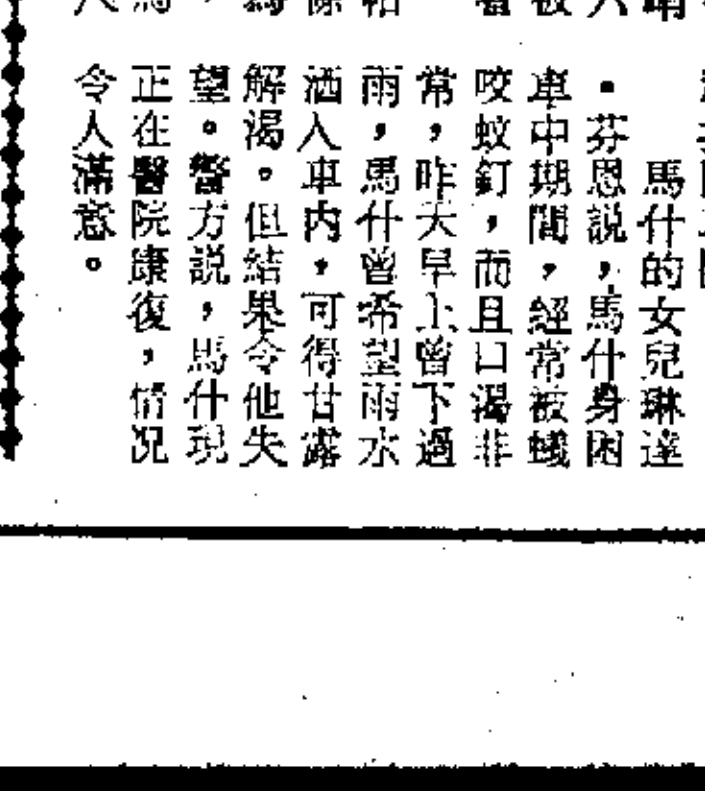 馬什的女兒琳達
・芬恩説,馬什身困
車中期間,經常被蟻
咬蚊釘,而且口渴非
常,昨天早上曾下過
雨,馬什曾希望雨水
洒入車内,可得甘露
解渴。但結果令他失
望。警方説,馬什現
正在醫院康復,情況
令人滿意。